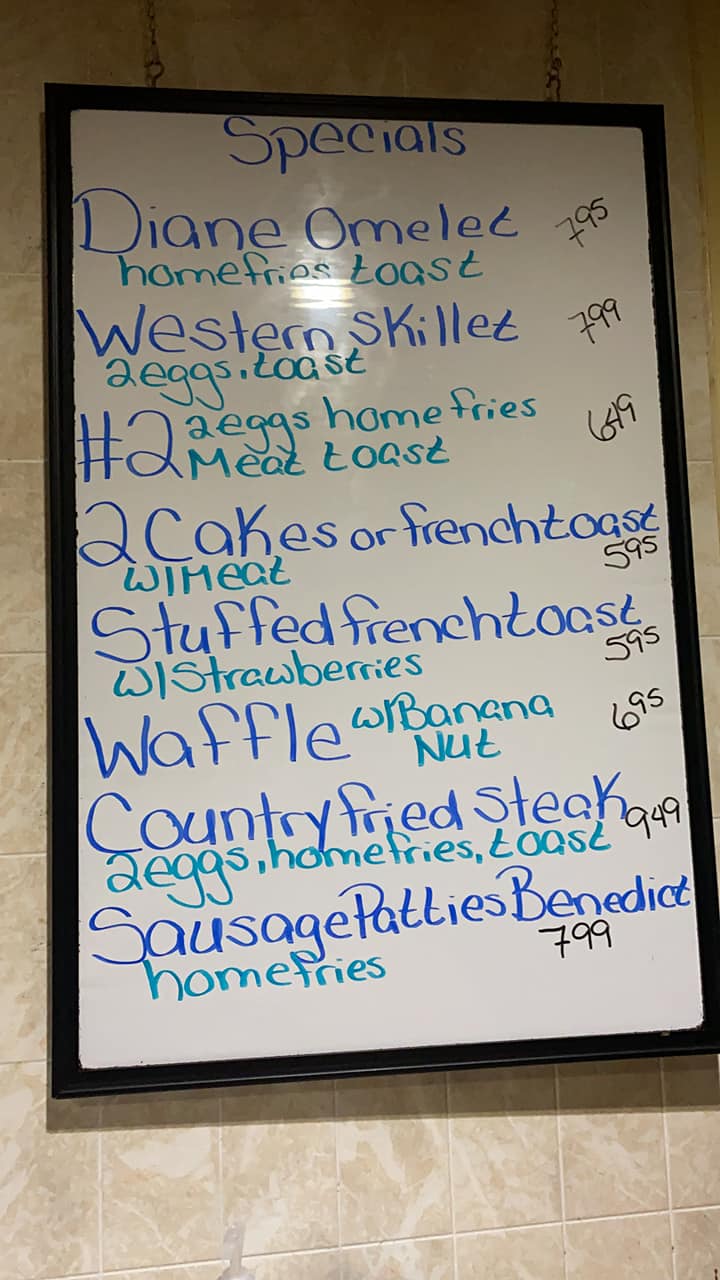 Specials
Diane Omelet 795
homefries toast
Western Skillet 799
2eggs, toast
#2 2eggs home fries 649
Meat toast
2 Cakes or french toast
w/Meat 595
Stuffed french toast
w/Strawberries 595
Waffle w/Banana 695
Nut
Country fried Steak 949
2eggs, homefries, toast
Sausage Patties Benedict
799
homefries